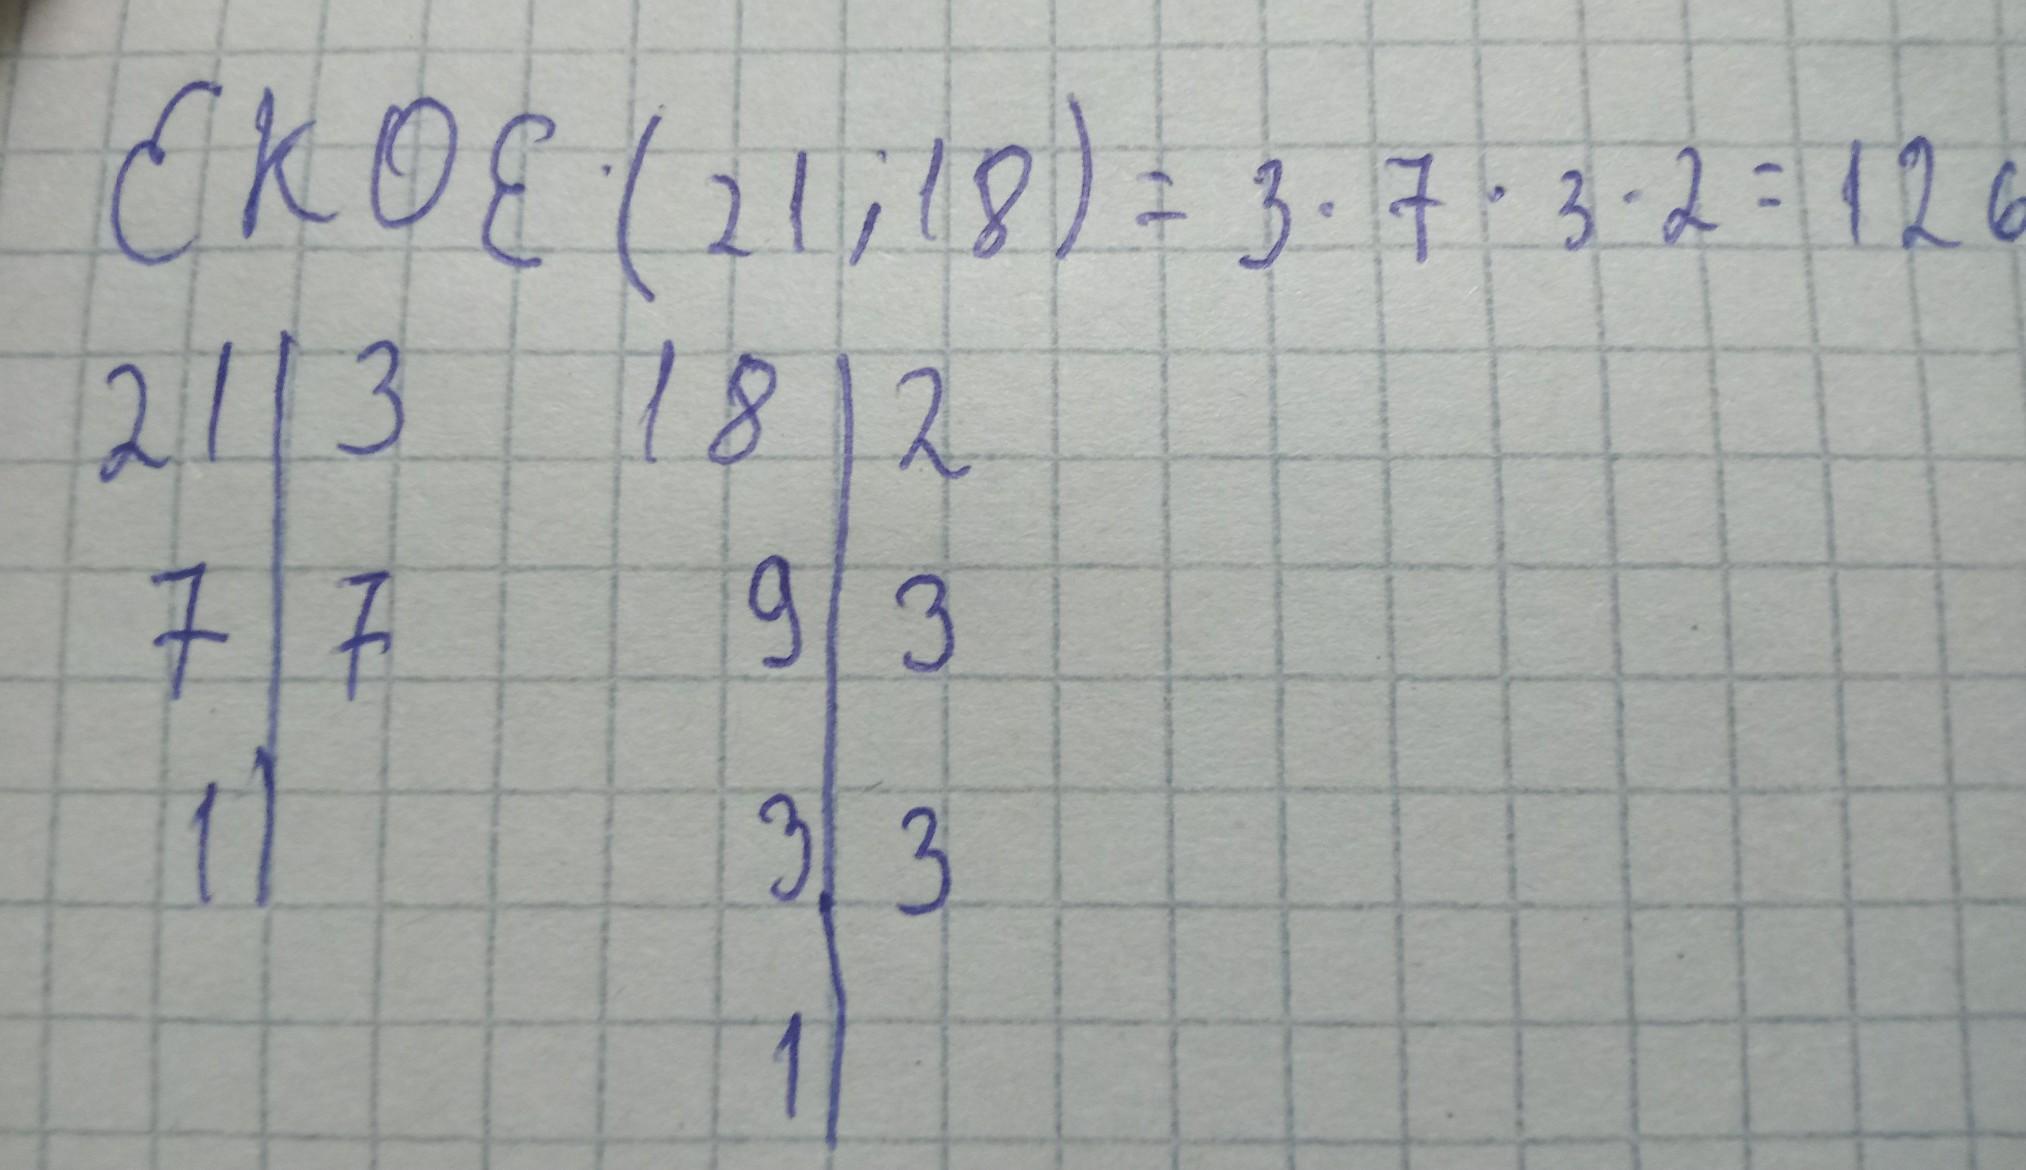 ЕКОЕ (21;18) = 3 · 7 · 3 · 2 = 126
21 | 3 18 | 2
7 | 7 9 | 3
1 | 3 | 3
1 |